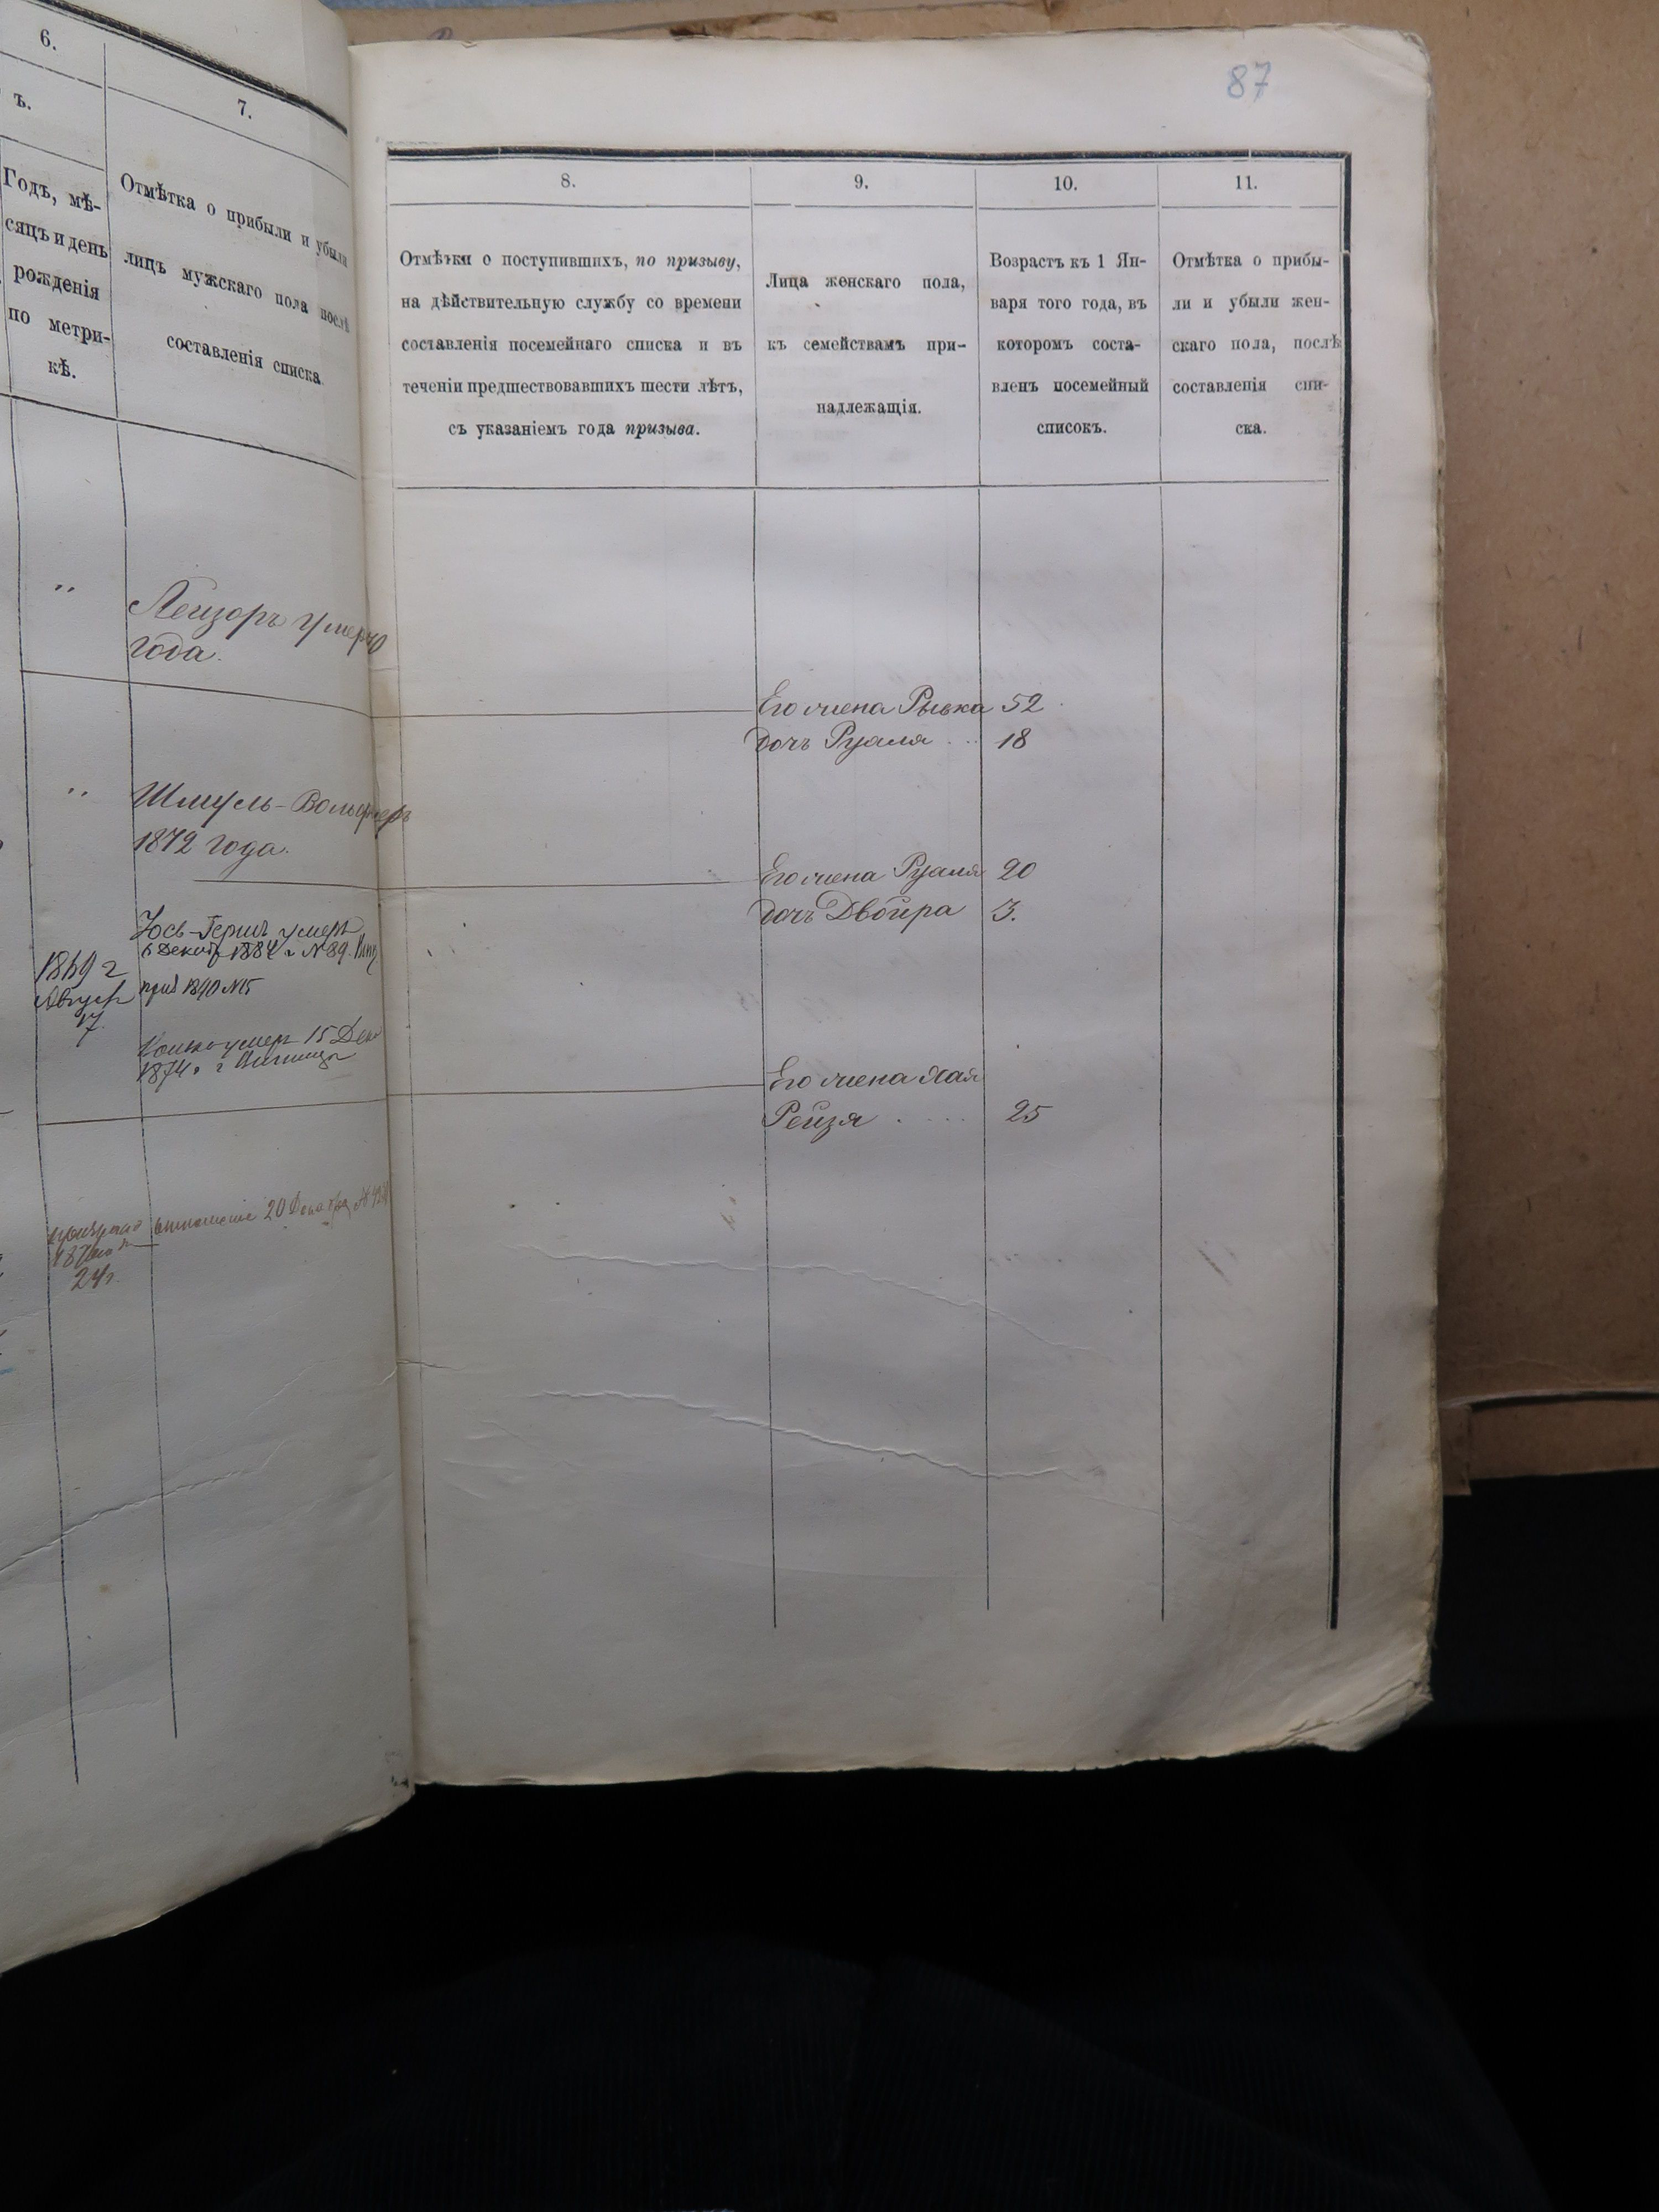 6.
7.
ъ.
Годъ, мѣ-
сяцъ и день
рожденія
по метри-
кѣ.
Отмѣтка о прибыли и убыли
лицъ мужскаго пола послѣ
составленія списка.
"
Лейзоръ умеръ
года.
"
Шмуль-Вольф умеръ
1872 года.
1869 г
Август
17.
Іось-Герш умеръ
6 Декаб 1884 г №89.
1890 №15
умер 15 Дек
1874. г Винница
отношение 20 Декабря №
24 г.
87
8.
9.
10.
11.
Отмѣтки о поступившихъ, по призыву,
на дѣйствительную службу со времени
составленія посемейнаго списка и въ
теченіи предшествовавшихъ шести лѣтъ,
съ указаніемъ года призыва.
Лица женскаго пола,
къ семействамъ при-
надлежащія.
Возрастъ къ 1 Ян-
варя того года, въ
которомъ соста-
вленъ посемейный
списокъ.
Отмѣтка о прибы-
ли и убыли жен-
скаго пола, послѣ
составленія спи-
ска.
Его жена Рывка 52
дочь Рухля 18
Его жена Рухля 20
дочь Двойра 3.
Его жена Хая
Рейзя 25